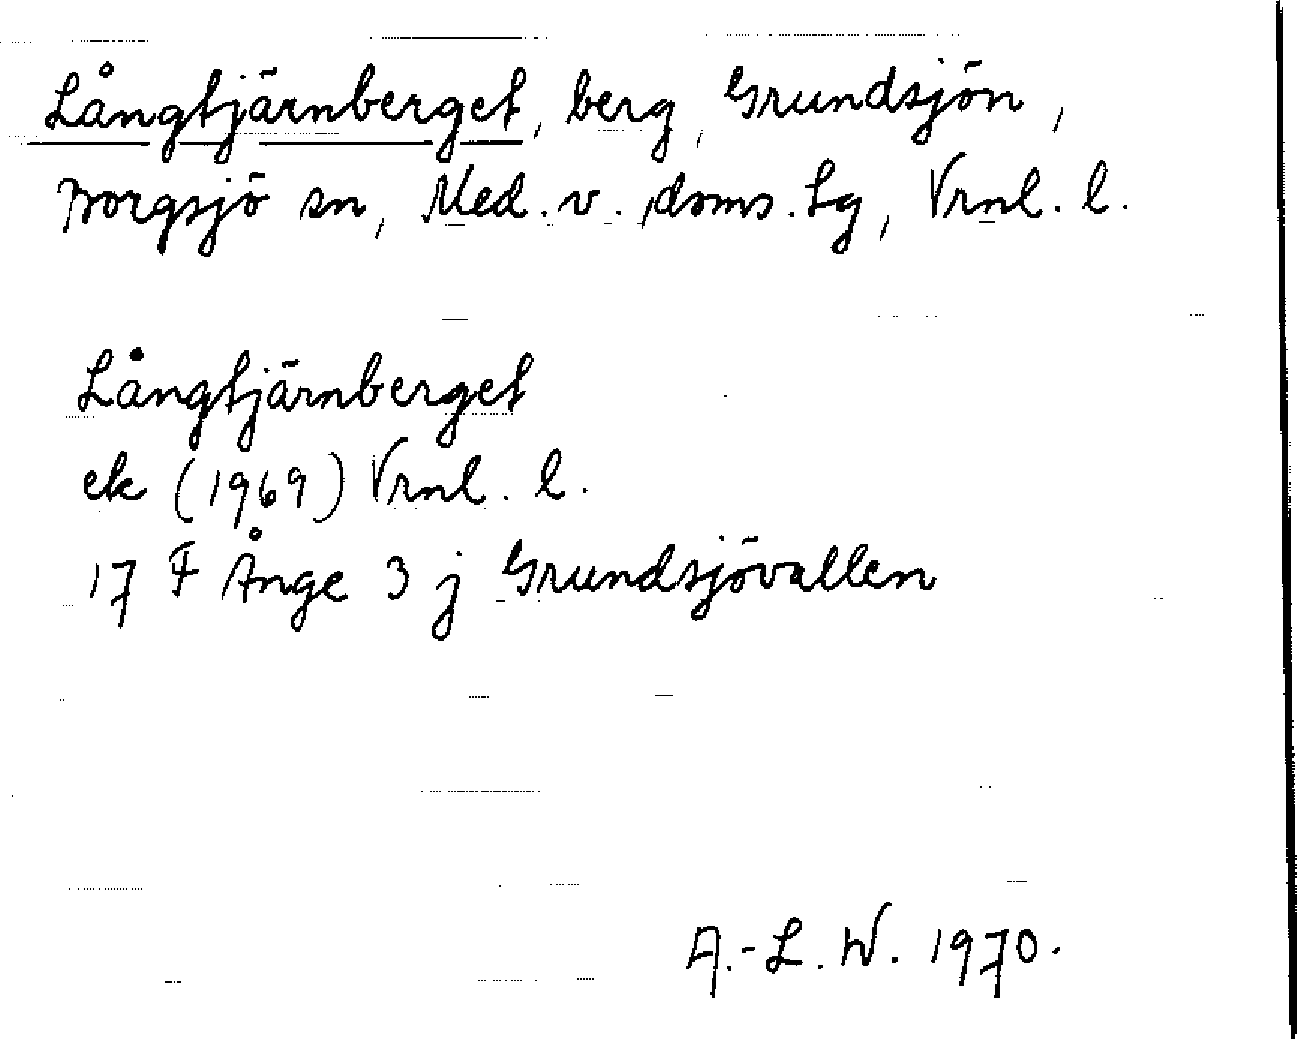 Långtjärnberget, berg, Grundsjön,
Borgsjö sn, Med. v. doms. lg, Vrnl. l.
Långtjärnberget
ek (1969) Vrnl. l.
17 F Ånge 3 j Grundsjövallen
A.-L. W. 1970.